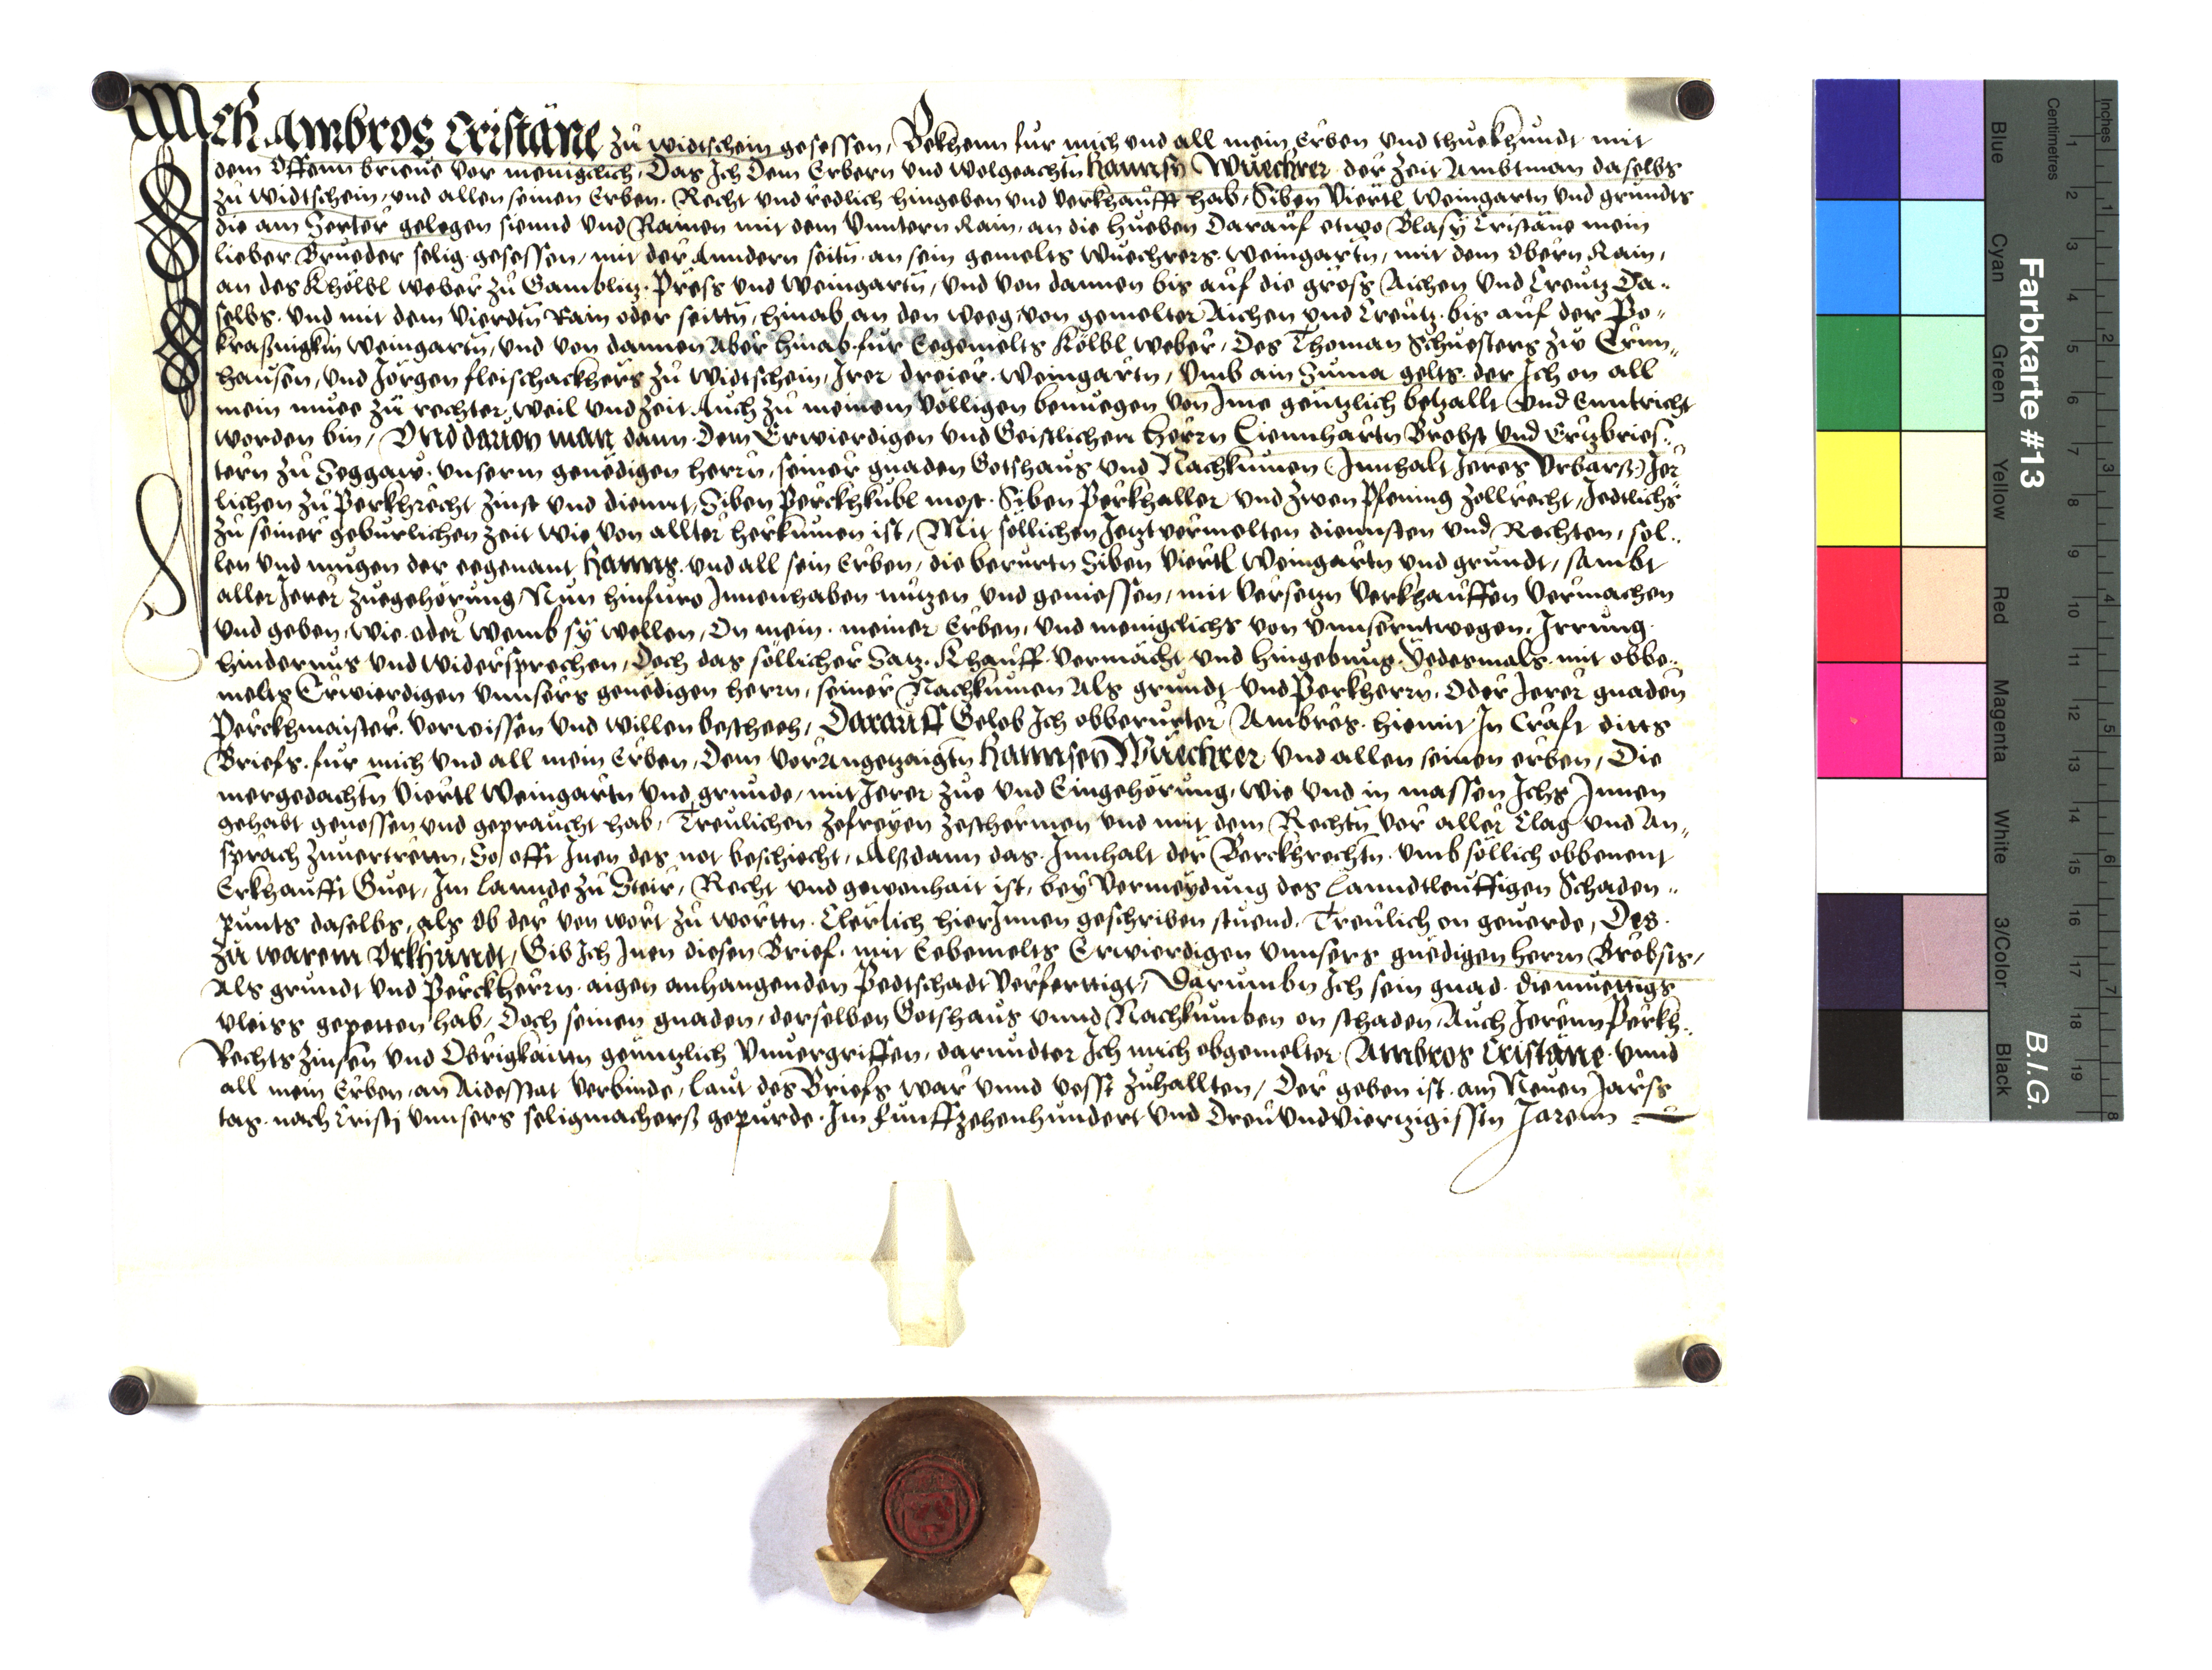 Ich Ambros Cristäne zu widtschein gesessen, Bekhenn fur mich und all mein Erben und thue khundt mit
dem Offenn brieve vor menigclich, Das Ich Dem Erbern und wolgeachtn Hannsn Wuechrer der Zeit Ambtman daselbs
zu widtschein, und allen seinen Erben. Recht und redlich hingeben und verkhaufft hab, Siben Viertl Weingartn und grundts
die am Serter gelegen sinnd und Rainen mit dem Unntern Rain, an die hueben Darauf etwo Blasy Cristäne mein
lieber Brueder selig gesessen, mit der Anndern seitn an sein gemelts Wuechrers weingartn, mit dem Obern Rain,
an des Khölbl weber zu Gamblitz Press und weingartn, und von dannen bis auf die gross Aichen und Creutz Da-
selbs. und mit dem vierdtn Rain oder seittn, hinab an den weeg, von gemelter Aichen und Creutz bis auf der Po-
kraßnigkin weingartn, und von dannen Aber hinab fur Eegemelts Kölbl weber, Des Thoman Schuesters zu Ernn-
hausen, und Jörgen fleischackhers zu widtschein, Irer dreier weingartn, Umb ain Suma gelts der Ich on all
mein muee zu rechter weil und Zeit Auch zu meinem volligen benuegen von Ime gentzlich betzallt und Enntricht
worden bin, Und davon man dann Dem Erwierdigen und Geistlichen Herrn Liennhartn Brobst und Ertzbries-
tern zu Seggaw unserm genedigen herrn, seiner gnaden Gotshaus und Nachkumen (Innhalt Ieres Urbarß) Jer
lichen zu Perkhrecht Zinst und diennt, Siben Perckhkubl most Siben Perkhaller und Zwen Pfening Zollrecht, Iedtlichs
zu seiner geburlichen Zeit wie von allter herkumen ist, Mit söllichen Jetzt vermelten diennsten und Rechten, sol-
len und mugen der eegenant Hanns und all sein Erben, die berurtn Siben Viertl Weingartn und grundt, sambt
aller Ierer zuegehörung, Nun hinfuro Innenhaben nutzen und geniessen, mit versetzn verkhauffen vermachen
und geben, wie oder wemb sy wellen, On mein meiner Erben, und menigclichs von unnserntwegen. Irrung
hindernus und widersprechen, Doch das söllicher Satz Khauff vermächt und hingebung yedesmals mit obbe-
melts Erwierdigen unnsers genedigen herrn, seiner Nachkumen Als grundt und Perkherrn, Oder Ierer gnaden
Perckhmaister vorwissen und willen bescheeh, Darauff Gelob Ich obberurter Ambros hiemit In Craft ditts
Briefs fur mich und all mein Erben, Dem vorangetzaigtn Hannsen Wuechrer und allen seinen erben, Die
mergedachtn Viertl Weingartn und grunde, mit Ierer Zue und Eingehörung, wie und in massen Ichs Innen
gehabt genossen und gepraucht hab, Treulichen zefreyen zeschermen und mit dem Rechtn vor aller Clag und An-
sprach zuvertretten, So offt Inen des not beschiecht, Alßdann das Innhalt der Berckhrechtn umb söllich obbenent
Erkhaufft Guet, Im lannde zu Steir, Recht und gewonhait ist, bey vermeydung des Lanndtleuffigen Schaden-
punts daselbs, als ob der von wort zu wortn Clerlich hierInnen geschriben stuend. Treulich on geverde, Des
zu warem Urkhundt, Gib Ich Inen diesen Brief mit Eebemelts Erwierdigen unnsers gnedigen herrn Brobsts,
Als grundt und Perckherrn aigen anhangenden Pedtschadt verferttigt, Darumbn Ich sein gnad diemuettigs
vleiss gepetten hab, Doch seinen gnaden, derselben Gotshaus unnd Nachkumben on schaden, Auch Ierenn Perkh-
Rechts Zinsen und Obrigkaitn gentzlich unvergriffen, darundter Ich mich obgemelter Ambros Cristäne unnd
all mein Erben, an Aidesstat verbinde, laut des Briefs war unnd vesst zuhallten, Der geben ist am Neuen Jarss
tag nach Cristi unnsers seligmacherß gepurde Im funffzehenhundert und Dreuundviertzigissten Jarenn
Farbkarte #13
B.I.G.
Inches 1 2 3 4 5 6 7 8
Centimetres 1 2 3 4 5 6 7 8 9 10 11 12 13 14 15 16 17 18 19
Blue Cyan Green Yellow Red Magenta White 3/Color Black